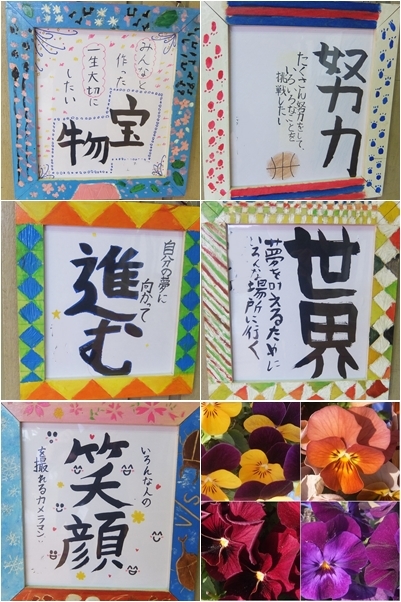 みんなと
作った
一生大切に
したい
宝
物
努力
たくさん努力をして、
いろいろなことを
挑戦したい
自分の夢に
向かって
進む
世界
夢を叶えるために
いろんな場所に行く
いろんな人の
笑顔
を撮れるカメラマン